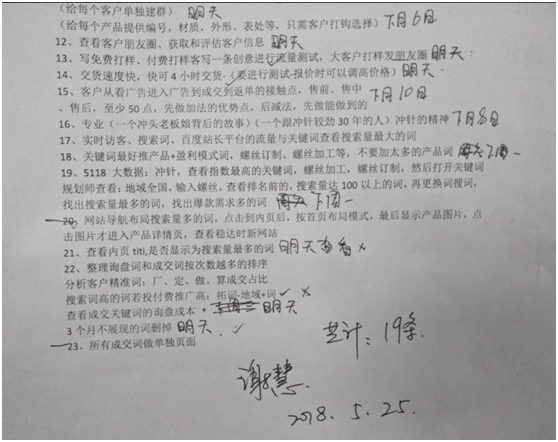 (给每个客户单独建群) 明天
(给每个产品提供编号,材质,外形、表处等,只需客户打钩选择) 下月6日
12、查看客户朋友圈、获取和评估客户信息 明天
13、写免费打样、付费打样客写一条创意进行流量测试,大客户打样发朋友圈 明天
14、交货速度快,快可4小时交货-(要进行测试-报价时可以调高价格) 明天
15、客户从看广告进入广告到成交到返单的接触点,售前、售中
、售后,至少50点,先做加法的优势点,后减法,先做能做到的 下月10日
16、专业(一个冲头老板娘背后的故事)(一个跟冲针较劲30年的人)冲针的精神 下月8日
17、实时访客、搜索词、百度站长平台的流量与关键词查看搜索量最大的词
18、关键词最好推产品+盈利模式词,螺丝订制、螺丝加工等,不要加太多的产品词 下周一
19、5118 大数据:冲针,查看指数最高的关键词,螺丝加工,螺丝订制,然后打开关键词
规划师查看:地域全国,输入螺丝,查看排名前的,搜索量达100以上的词,再更换词搜词,
找出搜索量最多的词,找出爆款需求多的词 下周一
20、网站导航布局搜索量多的词,点击到内页后,按首页布局模式,最后显示产品图片,点
击图片才进入产品详情页,查看稳达时新网站
21、查看内页 titi,是否显示为搜索量最多的词 明天查看 ×
22、整理询盘词和成交词按次数越多的排序
分析客户精准词:厂、定、做。算成交占比
搜索词高的词若投付费推广高:拓词-地域+词 ✓ ×
查看成交关键词的询盘成本。 明天
3个月不展现的词删掉 明天 ✓
23、所有成交词做单独页面
共计:19条.
谢慧.
2018、5、25.